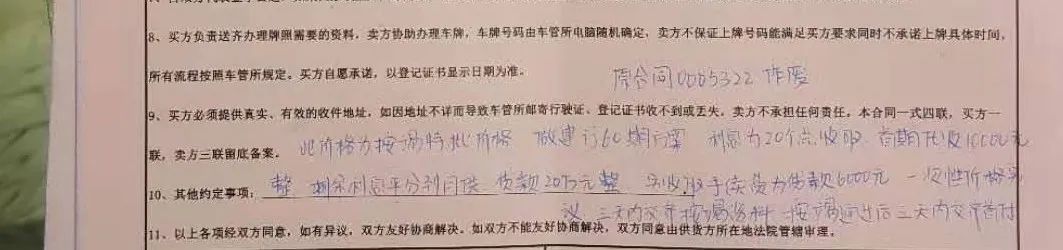 8、买方负责送齐办理牌照需要的资料，卖方协助办理车牌，车牌号码由车管所电脑随机确定，卖方不保证上牌号码能满足买方要求同时不承诺上牌具体时间，
所有流程按照车管所规定。买方自愿承诺，以登记证书显示日期为准。
原合同0005322 作废
9、买方必须提供真实、有效的收件地址，如因地址不详而导致车管所邮寄行驶证、登记证书收不到或丢失，卖方不承担任何责任，本合同一式四联，买方一
联，卖方三联留底备案。
此价格为按揭特批价格 做建行60期方案 利息为20个点收取 首期代收10000元
10、其他约定事项：整 剩余利息平分到月供 贷款20万元整 另收取手续费为贷款6000元 一次性价格另
议 三天内交齐按揭资料 按揭通过后三天内交齐首付
11、以上各项经双方同意，如有异议，双方友好协商解决。如双方不能友好协商解决，双方同意由供货方所在地法院管辖审理。